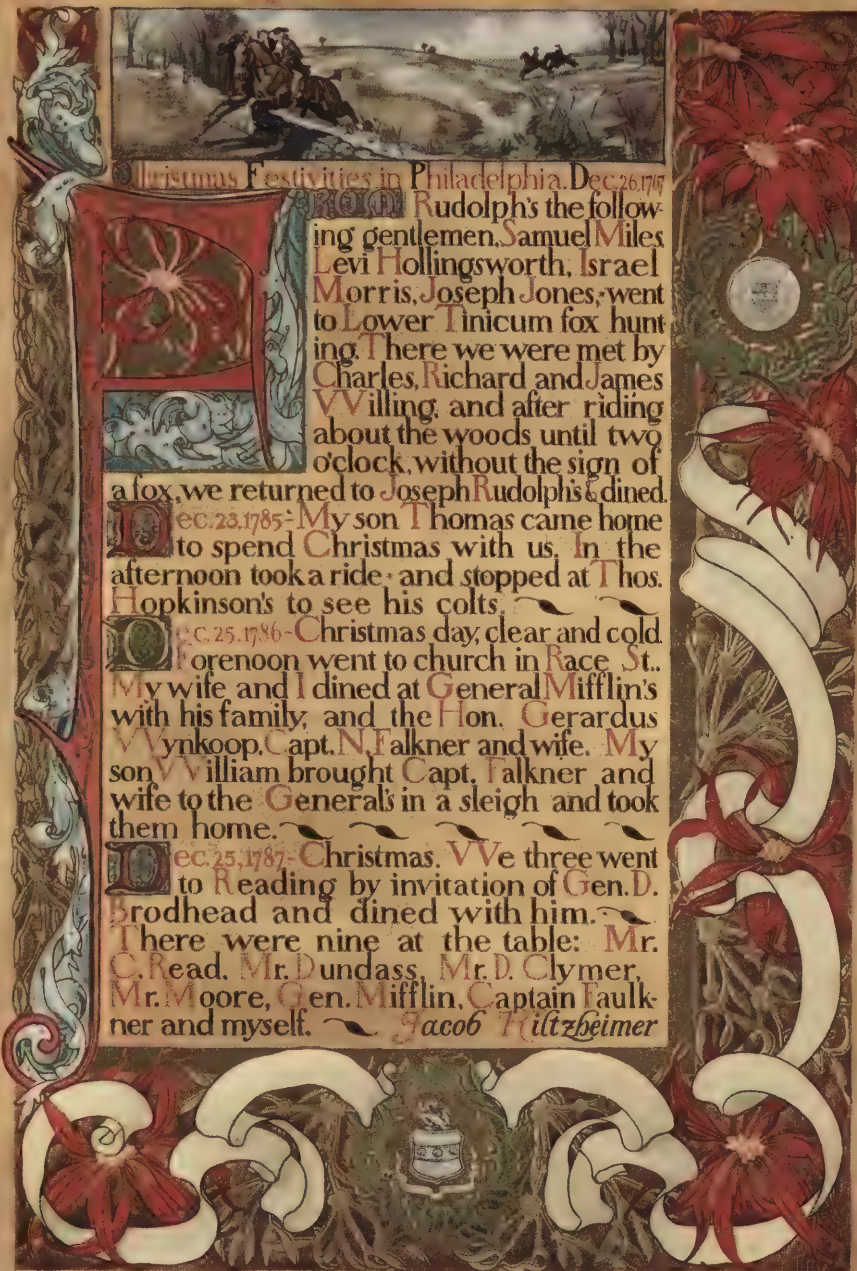 Christmas Festivities in Philadelphia. Dec. 26, 1767
FROM Rudolph's the follow-
ing gentlemen, Samuel Miles
Levi Hollingsworth, Israel
Morris, Joseph Jones, went
to Lower Tinicum fox hunt
ing. There we were met by
Charles, Richard and James
Willing, and after riding
about the woods until two
o'clock, without the sign of
a fox, we returned to Joseph Rudolph's & dined.
Dec. 23, 1785- My son Thomas came home
to spend Christmas with us. In the
afternoon took a ride and stopped at Thos.
Hopkinson's to see his colts.
Dec. 25. 1786-Christmas day, clear and cold.
Forenoon went to church in Race St..
My wife and I dined at General Mifflin's
with his family, and the Hon. Gerardus
Wynkoop, Capt. N. Falkner and wife. My
son William brought Capt. Falkner and
wife to the General's in a sleigh and took
them home.
Dec. 25, 1787-Christmas. We three went
to Reading by invitation of Gen. D.
Brodhead and dined with him.
There were nine at the table: Mr.
C. Read, Mr. Dundass, Mr. D. Clymer,
Mr. Moore, Gen. Mifflin, Captain Faulk-
ner and myself. Jacob Hiltzheimer